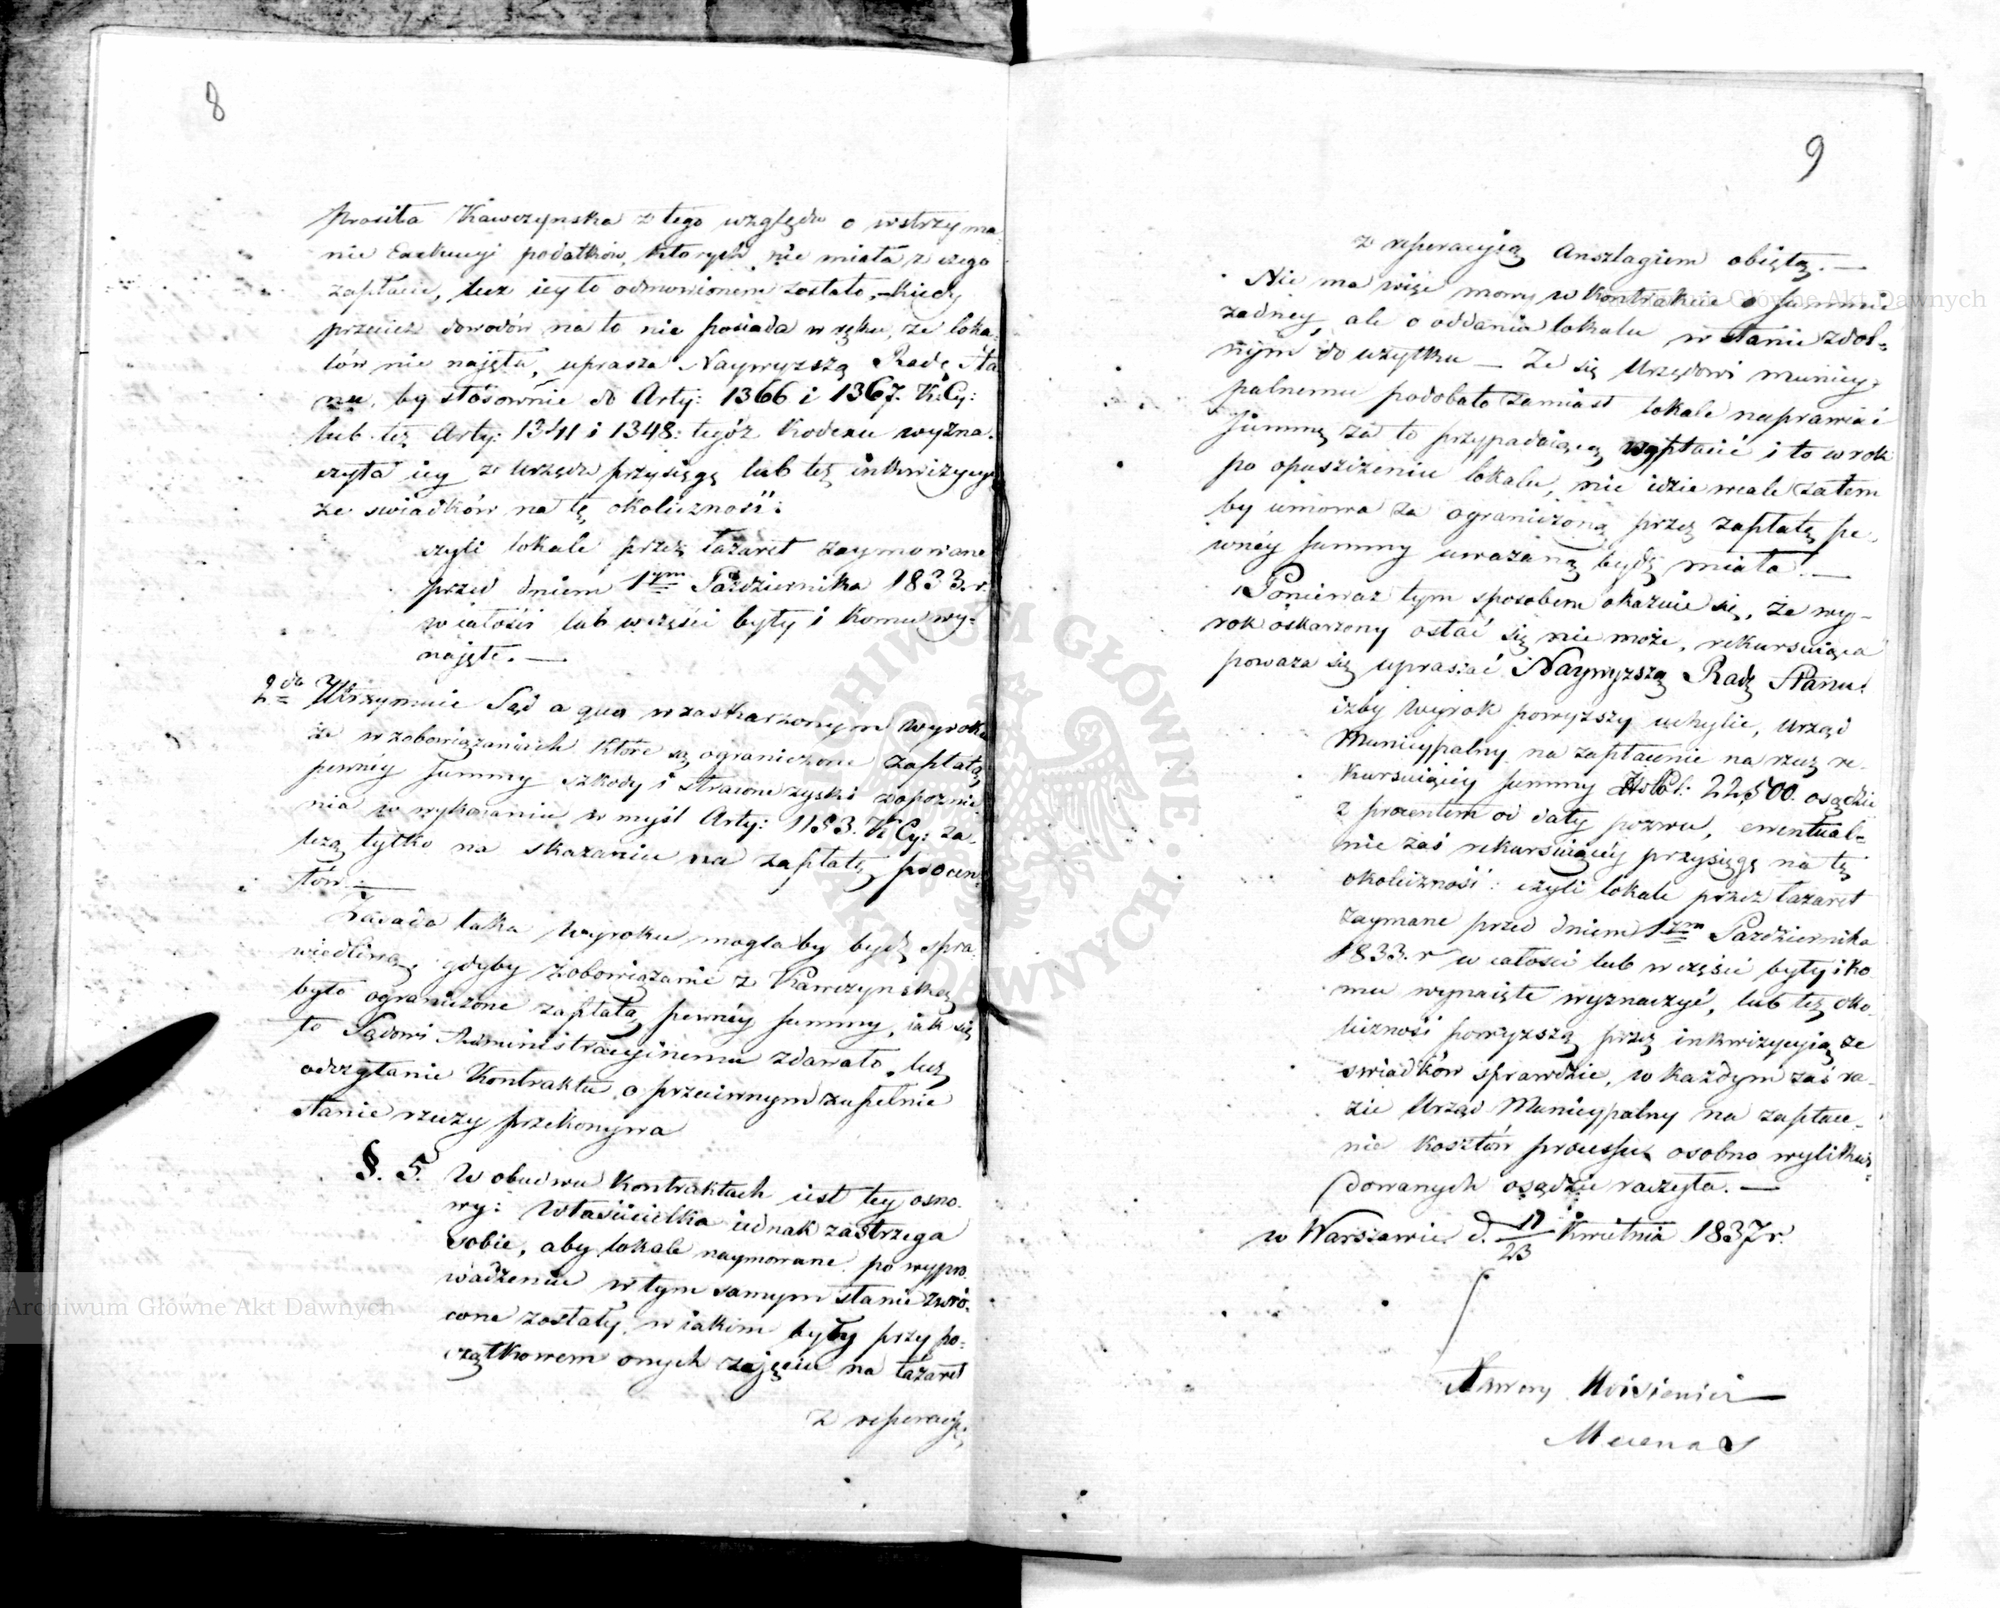 8
prosiła Kawczynska z tego względu o wstrzyma-
nie Exekucyi podatków, których nie miała z czego
zapłacić, lecz iey to odmowionem zostało, – kiedy
przecież dowodów na to nie posiada w ręku, że loka-
lów nie najęła, uprasza Naywyzszą Radę Sta
nu, by stósownie do Arty: 1366 i 1367. K: Cy:
lub też Arty: 1341 i 1348: tegóż Kodexu wyzna-
czyła iey ze Urzędu przysięgę lub też inkwizycyę
ze swiadków na tę okoliczność:
czyli lokale przez lazaret zaymowane
przed dniem 1ym Października 1833. r.
w całości lub w części były i komu wy-
najęte. —
2do Utrzymuie Sąd a quo w zaskarzonym wyroku
że w zobowiązaniach które są ograniczone zapłatą
pewney summy szkody i stracone zyski z opoznie
nia w wykonaniu w myśl Arty: 1153. K: Cy: za-
leżą tylko na skazaniu na zapłatę procen-
tów. —
Zasada taka wyroku mogła by bydź spra
wiedliwą, gdyby zobowiązanie z Kawczynską
było ograniczone zapłatą pewnéy summy, iak się
to Sądowi Administracyjnemu zdawało, lecz
odczytanie Kontraktu o przeciwnym zupełnie
stanie rzeczy przekonywa
§. 5. W obudwu Kontraktach iest tey osno-
wy: Właścicielka iednak zastrzega
sobie, aby lokale naymowane po wypro-
wadzeniu w tym samym stanie zwró-
cone zostały, w iakim były przy po-
czątkowem onych zajęciu na lazaret
z reperacyą
9
z reperacyią Anszlagiem obiętą. —
Nie ma więc mowy w kontrakcie o summie
żadney, ale o oddaniu lokalu w stanie zdol-
nym do użytku — Ze się Urzędowi municy-
palnemu podobało zamiast lokale naprawiać
summę za to przypadaiącą wypłacić i to w rok
po opuszczeniu lokalu, nie idzie wcale zatem
by umowa za ograniczoną przez zapłatę pe-
wnéy summy uważaną bydź miała. —
Poniewaz tym sposobem okazuie się, że wy-
rok oskarzony ostać się nie może, rekursuiąca
poważa się upraszać Naywyzszą Radę Stanu,
iżby Wyrok powyzszy uchylić, Urząd
Municypalny na zapłacenie na rzecz re-
kursuiącéy summy Złł Pol: 22,500. osądzić
z procentem od daty pozwu, ewentual-
nie zaś rekursuiącéy przysięgę na tę
okoliczność: czyli lokale przez lazaret
zaymane przed dniem 1ym Pazdziernika
1833. r w całości lub w części były i ko
mu wynaięte wyznaczyć, lub też oko-
liczność powyzszą przez inkwizycyią ze
swiadków sprawdzić, w każdym zaś ra-
zie Urząd Municypalny na zapłace-
nie kosztów processu osobno wylikwi-
dowanych osądzić raczyła. —
w Warszawie d. 11/23 Kwietnia 1837 r.
Mecenas